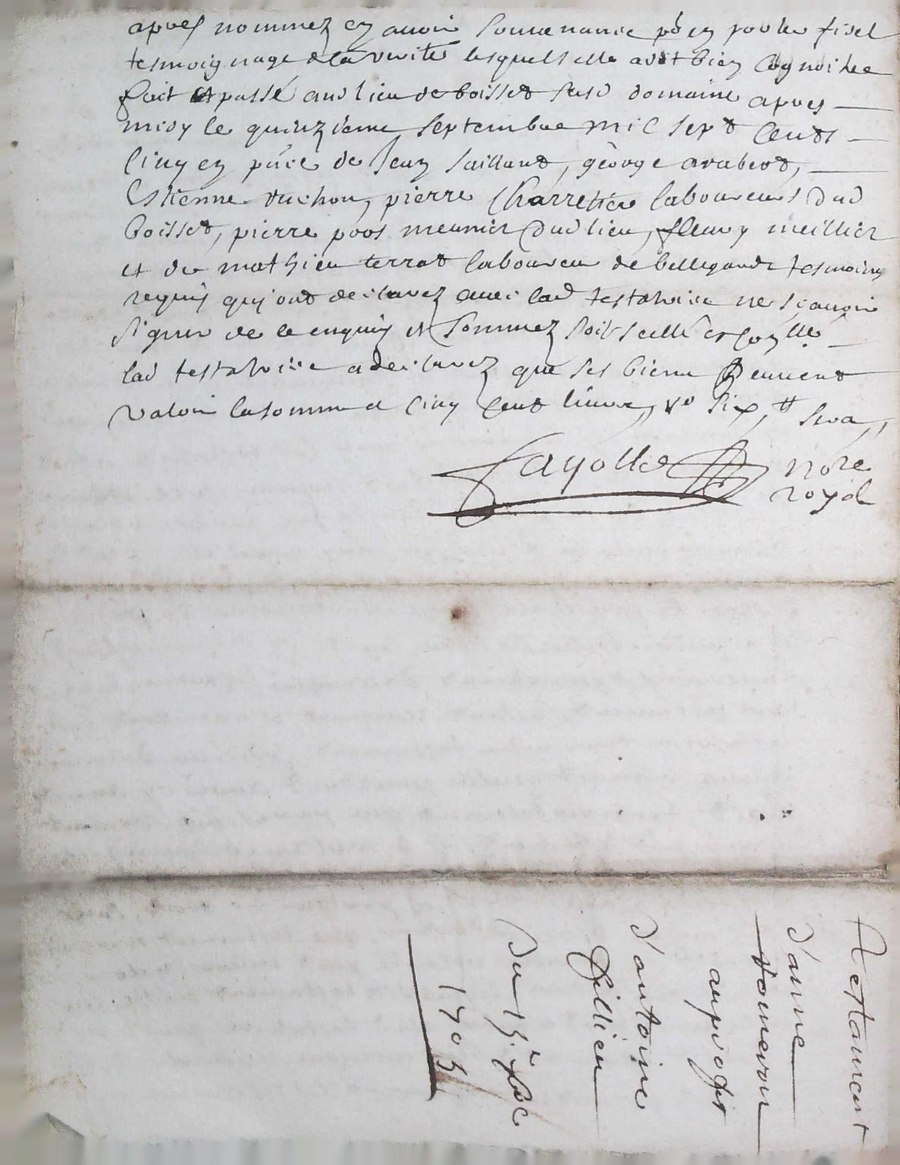 apres nommez en avoir souvenance po en porter fidel
tesmoignage de la verite lesquels elle a dit bien cognoitre
fait et passé aud lieu de boisset susd domaine apres
midy le quinzieme septembre mil sept cents
cinq en pñce de Jean Saillant, george arabeot,
Estienne Duchon, pierre Charretier laboureurs dud
boisset, pierre poos meunier dud lieu, fleury meillier
et de mathieu terrat laboureur de bellegarde tesmoins
requis qui ont declarez avec lad testatrice ne scavoir
signer de ce enquis et sommez soit scellé et con^llé
lad testatrice a declarez que ses biens peuvent
valoir la somme de cinq cent livres,
Fayolle nore
royal
Testament
d'anne
au profit
d'antoine
Du 15e 7bre
1705